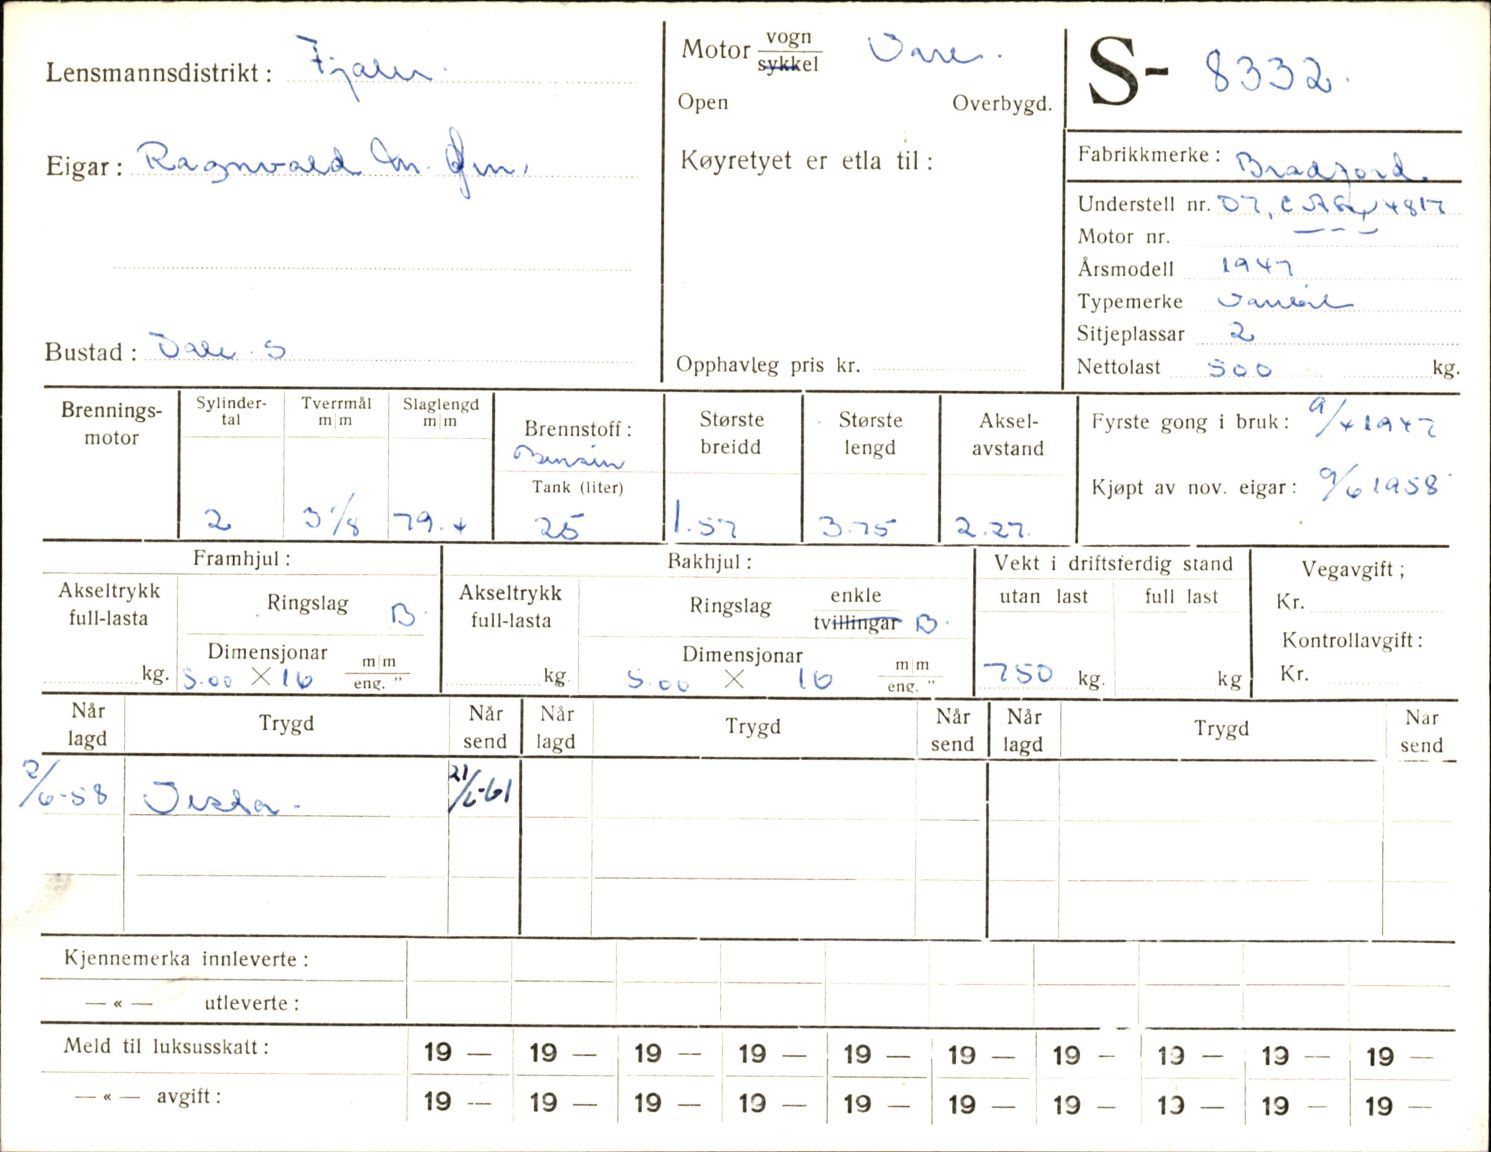 Lensmannsdistrikt: Fjaler.
Motor vogn/sykkel Vare.
S- 8332.
Open Overbygd.
Eigar: Ragnvald M.
Køyretyet er etla til:
Fabrikkmerke: Bradford.
Understell nr. D7, 4817
Motor nr. — — —
Årsmodell 1947
Typemerke Varebil
Sitjeplassar 2
Bustad: Dale. S
Opphavleg pris kr.
Nettolast 500 kg.
Brennings-motor
Sylinder-tal 2
Tverrmål m|m 3 1/8
Slaglengd m|m 79.4
Brennstoff: Bensin
Tank (liter) 25
Største breidd 1.57
Største lengd 3.75
Aksel-avstand 2.27.
Fyrste gong i bruk: 9/4 1947
Kjøpt av nov. eigar: 9/6 1958
Framhjul:
Akseltrykk full-lasta kg.
Ringslag B.
Dimensjonar 5.00 × 16 m|m eng. "
Bakhjul:
Akseltrykk full-lasta kg.
Ringslag enkle tvillingar B.
Dimensjonar 5.00 × 16 m|m eng. "
Vekt i driftsferdig stand
utan last 750 kg.
full last kg
Vegavgift;
Kr.
Kontrollavgift:
Kr.
Når lagd Trygd Når send Når lagd Trygd Når send Når lagd Trygd Når send
2/6-58 Vesta. 21/6-61
Kjennemerka innleverte:
— « — utleverte:
Meld til luksusskatt: 19 — 19 — 19 — 19 — 19 — 19 — 19 — 19 — 19 — 19 —
— « — avgift: 19 — 19 — 19 — 19 — 19 — 19 — 19 — 19 — 19 — 19 —